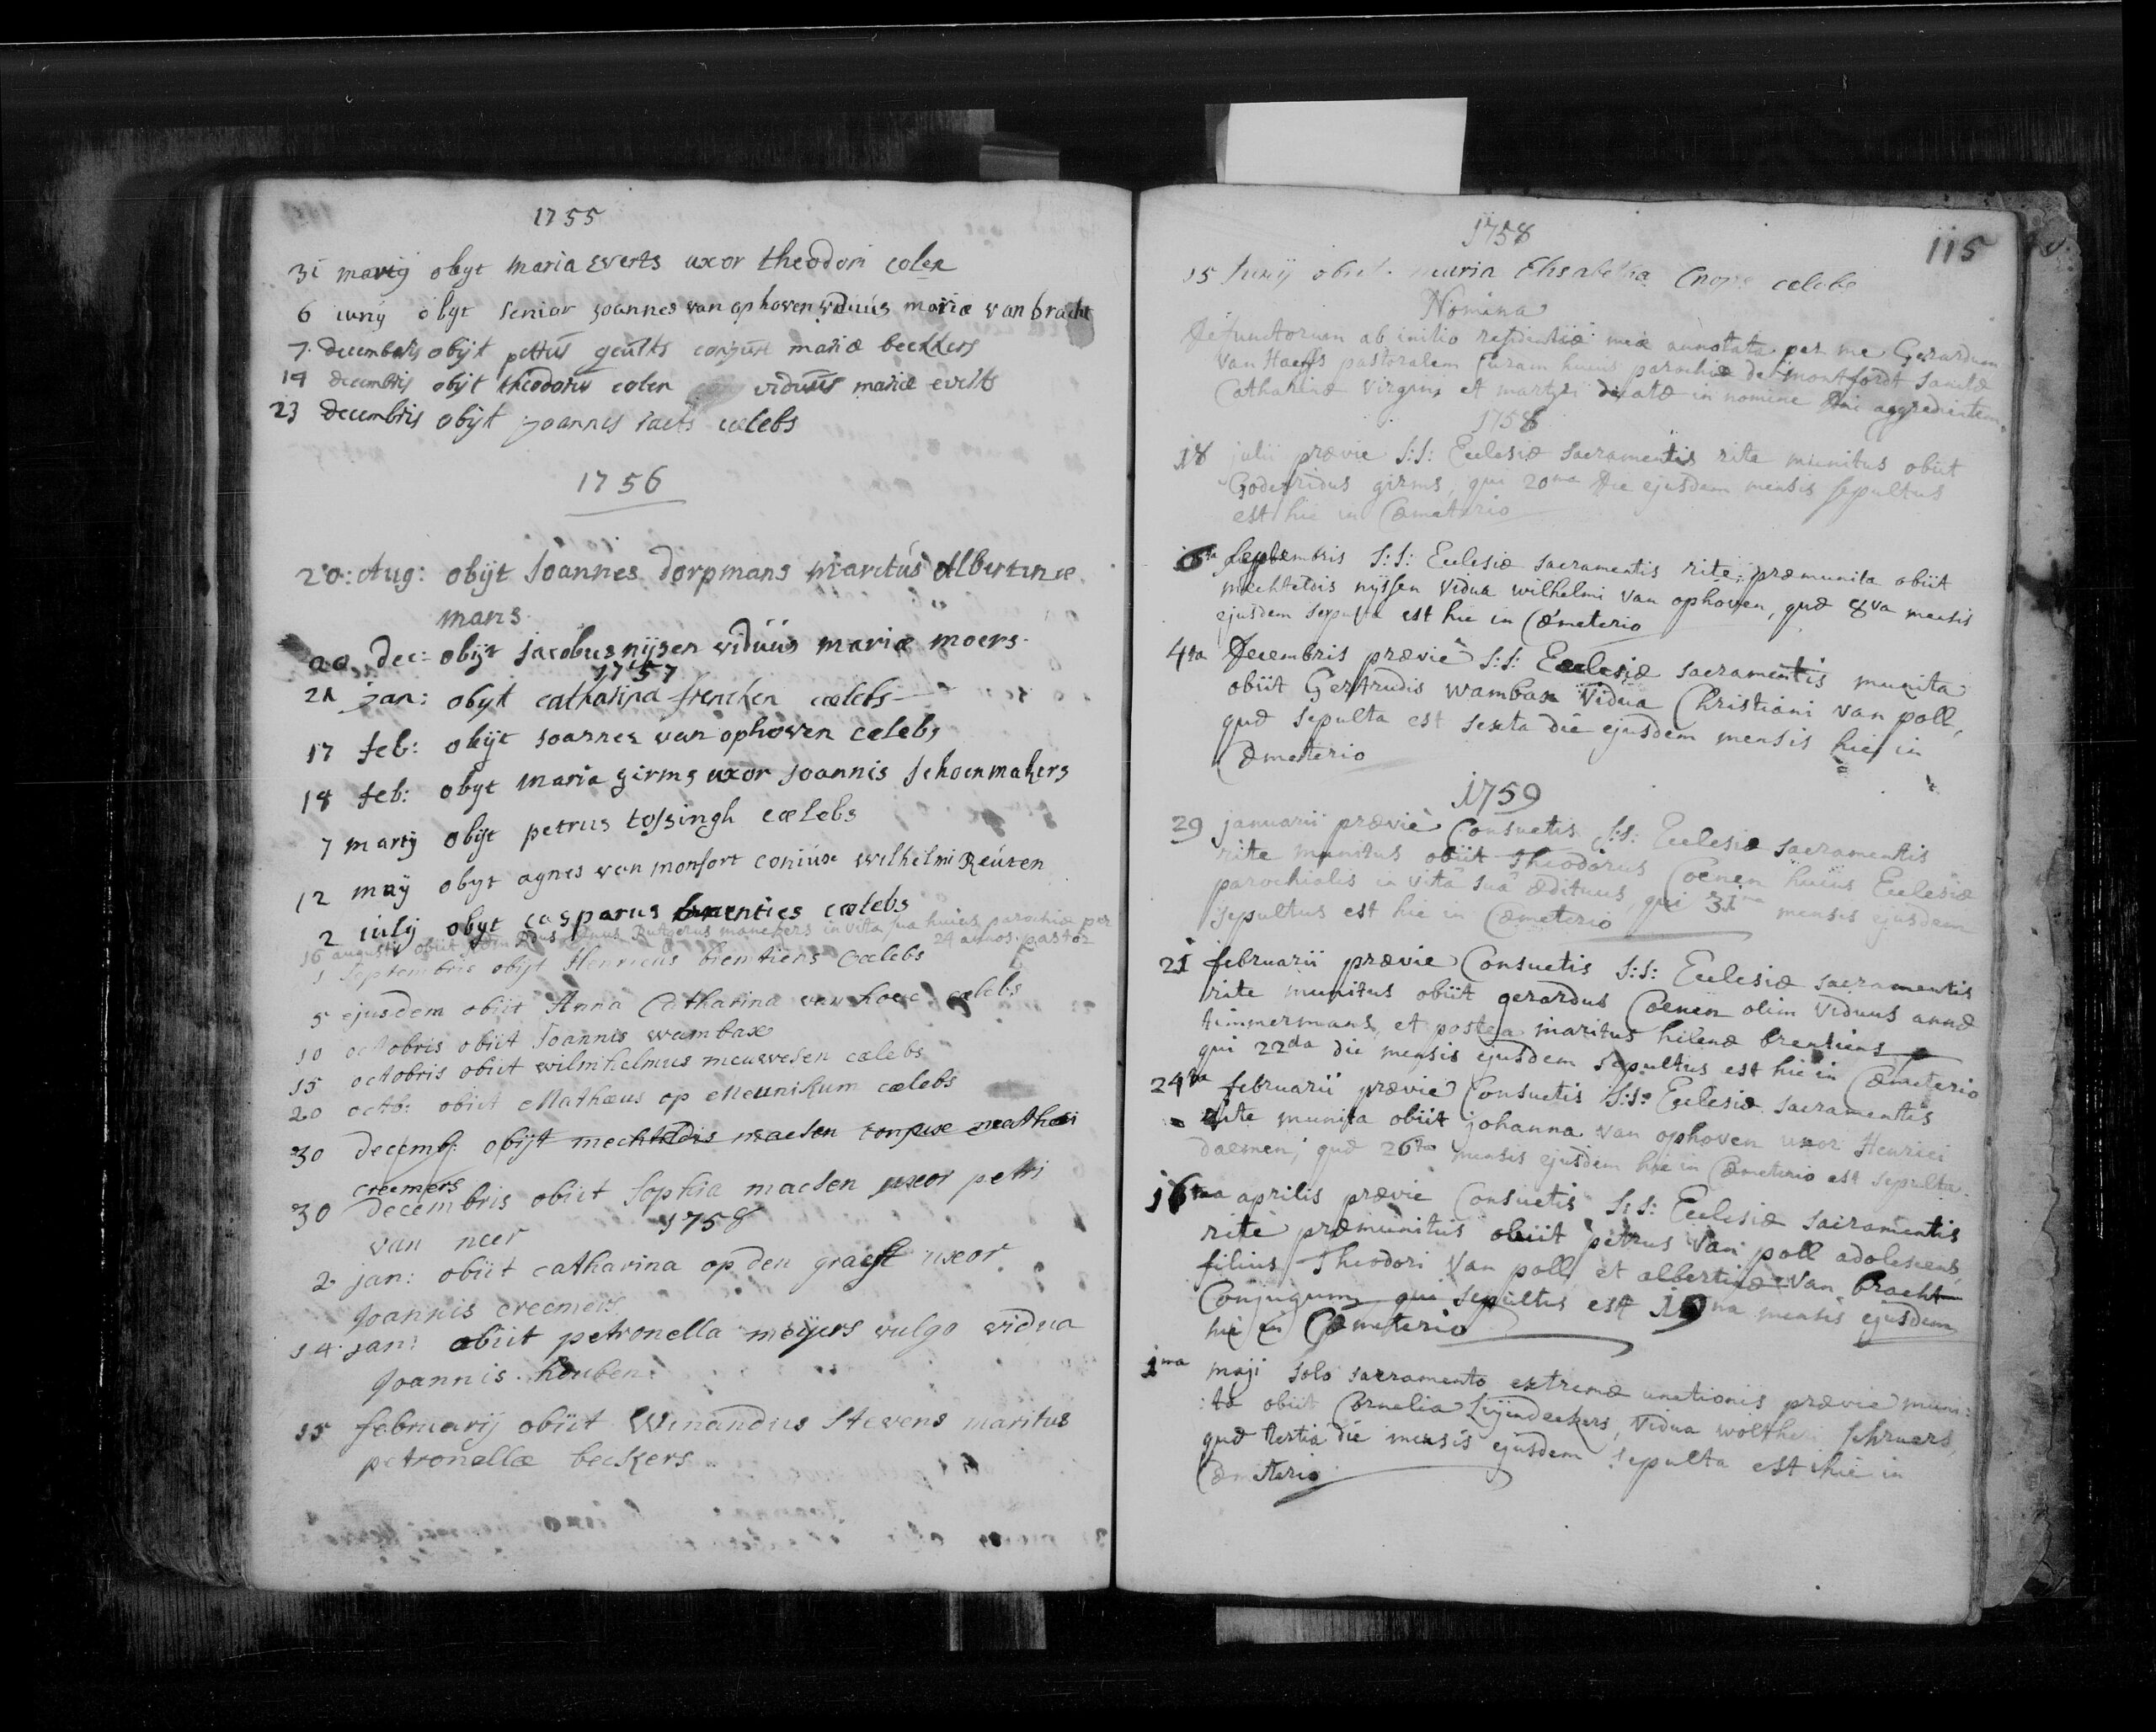 1755
31 martij obijt Maria Everts uxor theodori colen
6 iunij obijt senior joannes van ophoven viduús mariæ van bracht
7 decembris obijt petrus geúlts conjunx mariæ beckkers
19 decembris obijt theodorus colen viduús mariæ evelts
23 decembris obijt joannes saets cælebs
1756
20: Aug: obijt Joannes dorpmans maritús Albertinæ
mans
dec: obijt Jacobus nijsen viduús mariæ moers.
1757
21 jan: obijt catharina frencken cælebs
17 feb: obijt joannes van ophoven cælebs
18 feb: obijt maria girms uxor joannis schoenmakers
7 martij obijt petrus tossingh cælebs
12 maij obijt agnes van monfort coniúx wilhelmi Reúten
2 iulij obijt casparus cælebs
16 augusti obiit Rutgerus manckers in vita sua huius parochiæ per
24 annos pastor
1 Septembris obijt Henricus brentiens Cælebs
5 ejusdem obiit Anna Catharina van hoec cælebs
10 octobris obiit Joannis wambax
15 octobris obiit wilmhelmus meuwesen cælebs
20 octb: obiit Mathæus op Meunikum cælebs
30 decemb: obijt mechteldis maesen conjux mathei
creemers
30 Decembris obiit Sophia maesen uxor petri
1758
van neer
2 jan: obiit catharina op den graeft uxor
Joannis creemers
14 jan: obiit petronella meijers vulgo vidua
Joannis houben
15 februarij obiit Winandus Stevens maritus
petronellæ beckers
115
1758
15 Junij obiit maria Elisabetha cælebs
Nomina
Defunctorum ab initio residentiæ meæ annotata per me Gerardum
van Haeffs pastoralem Curam huius parochiæ de montfordt Sanctæ
Catharinæ virgini et martyri dicatæ in nomine Dni aggredientem.
1758
18 julii prævie S:S: Ecclesiæ sacramentis rite munitus obiit
Godefridus girms, qui 20ma Die ejusdem mensis sepultus
est hic in Cæmeterio
6ta septembris S:S: Ecclesiæ sacramentis rite præmunita obiit
mechteldis nijssen vidua wilhelmi van ophoven, quæ 8va mensis
ejusdem sepulta est hic in Cæmeterio
4ta Decembris prævie S:S: Ecclesiæ sacramentis munita
obiit Gertrudis wambax vidua Christiani van poll,
quæ sepulta est sexta die ejusdem mensis hic in
Cæmeterio
1759
29 januarii prævie Consuetis S:S: Ecclesiæ sacramentis
rite munitus obiit Theodorus Coenen huius Ecclesiæ
parochialis in vitâ suâ ædituus, qui 31ma mensis ejusdem
sepultus est hic in Cæmeterio
21 februarii prævie Consuetis S:S: Ecclesiæ sacramentis
rite munitus obiit gerardus Coenen olim viduus annæ
timmermans, et postea maritus hilenæ brentiens
qui 22da die mensis ejusdem sepultus est hic in Cæmeterio
24ta februarii prævie Consuetis S:S: Ecclesiæ sacramentis
rite munita obiit johanna van ophoven uxor Henrici
daemen, quæ 26ta mensis ejusdem hic in Cæmeterio est sepulta.
16ma aprilis prævie Consuetis S:S: Ecclesiæ sacramentis
rite præmunitus obiit petrus van poll adolescens,
filius Theodori van poll et albertinæ van bracht
Conjugum, qui sepultus est 19na mensis ejusdem
hic in Cæmeterio
1ma maji solo sacramento extremæ unctionis prævie muni:
:ta obiit Cornelia Leijendeckers, vidua schruers,
quæ tertia die mensis ejusdem sepulta est hic in
Cæmeterio